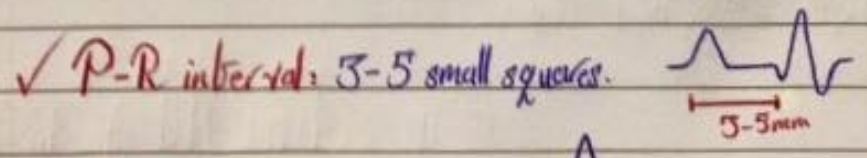 ✓ P-R interval: 3-5 small squares.
3-5mm